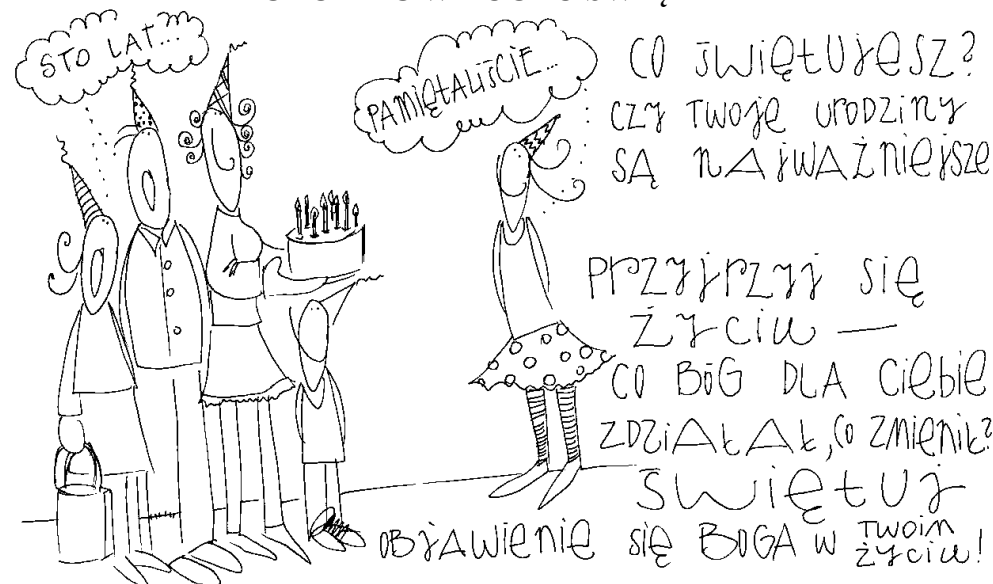 STO LAT...
PAMIĘTALIŚCIE...
CO ŚWIĘTUJESZ?
CZY TWOJE URODZINY
SĄ NAJWAŻNIEJSZE
PRZYJRZYJ SIĘ
ŻYCIU —
CO BÓG DLA CIEBIE
ZDZIAŁAŁ, CO ZMIENIŁ?
ŚWIĘTUJ
OBJAWIENIE SIĘ BOGA W TWOIM
ŻYCIU!